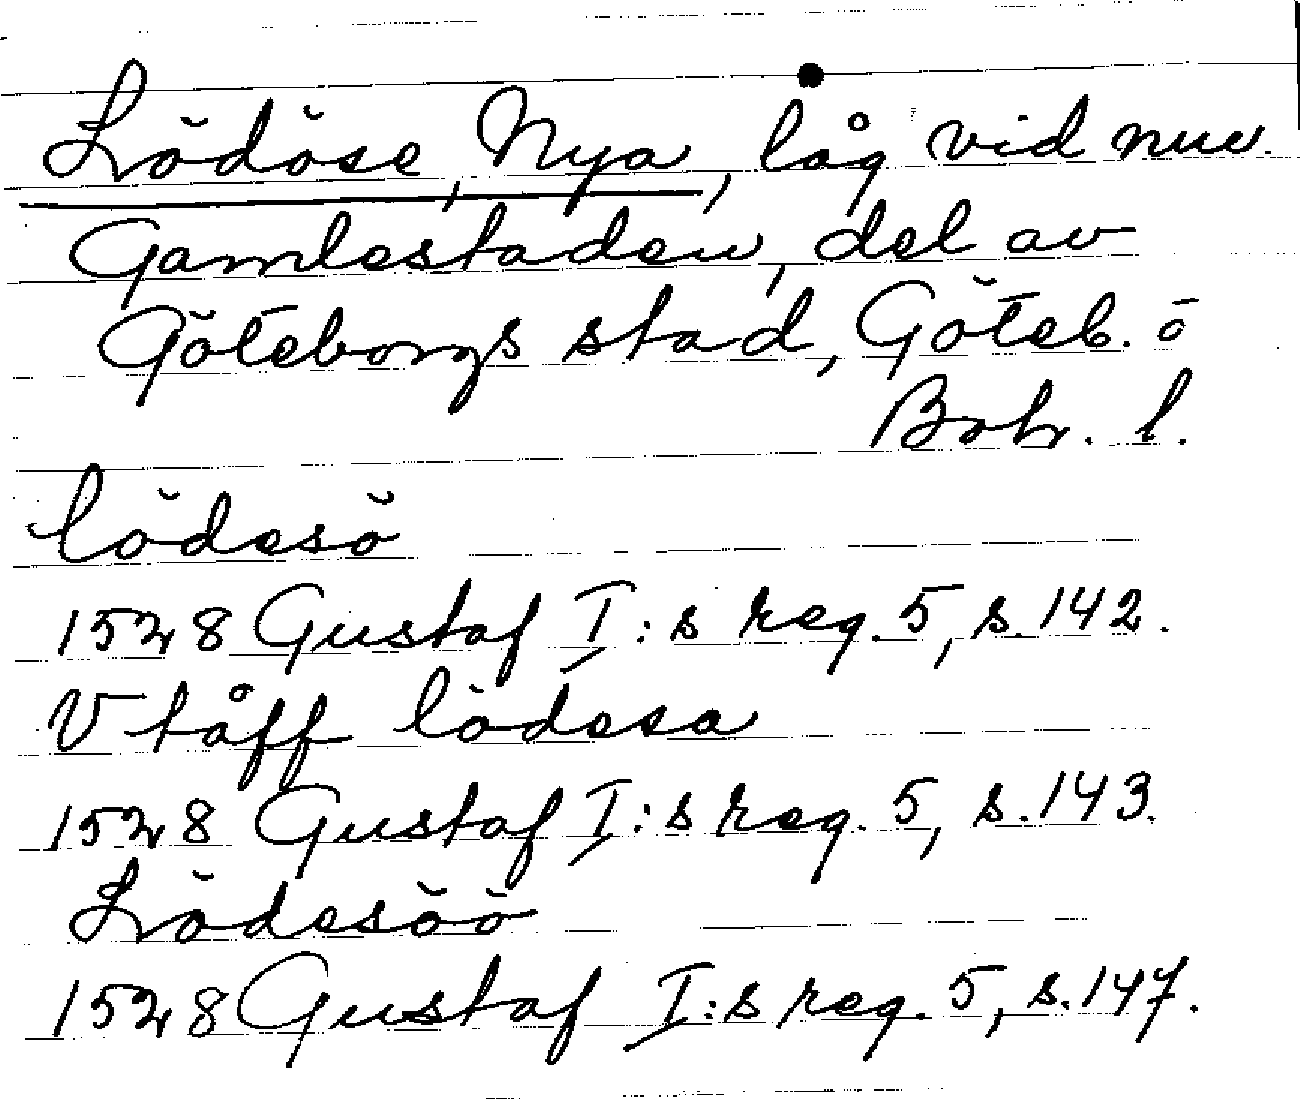 Lödöse, Nya, låg vid nuv.
Gamlestaden, del av
Göteborgs stad, Göteb. o
Boh. l.
lödesö
1528 Gustaf I:s reg. 5, s. 142.
V tåff lödesa
1528 Gustaf I:s reg. 5, s. 143.
Lödesöö
1528 Gustaf I:s reg. 5, s. 147.